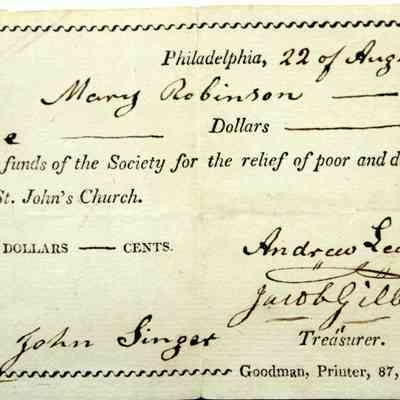 Philadelphia, 22 of Aug
Mary Robinson
e — Dollars
funds of the Society for the relief of poor and d
St. John's Church.
DOLLARS — CENTS.
Andrew Lea
Jacob Gill
John Singer Treasurer.
Goodman, Printer, 87,